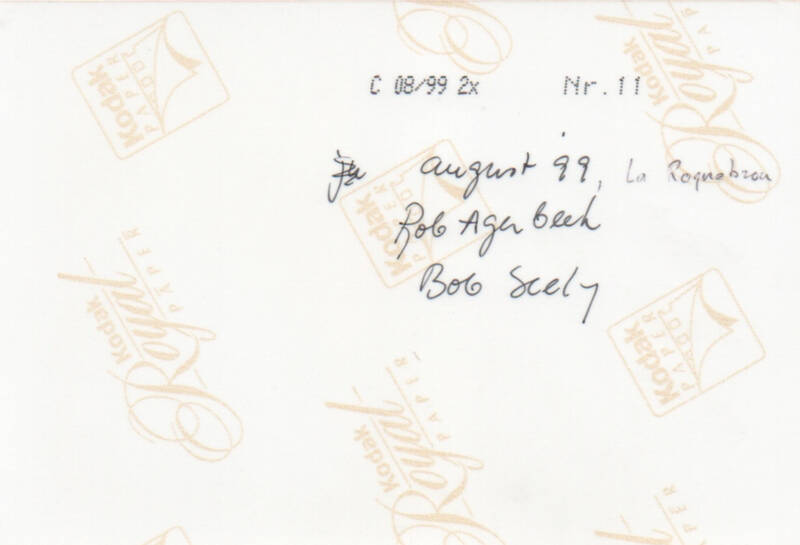 C 08/99 2x Nr. 11
august '99, La Roquebrou
Rob Agerbeek
Bob Seely
Kodak PAPER
Kodak PAPER
Kodak Royal PAPER
Kodak PAPER
Kodak Royal PAPER
Kodak PAPER
Kodak Royal PAPER